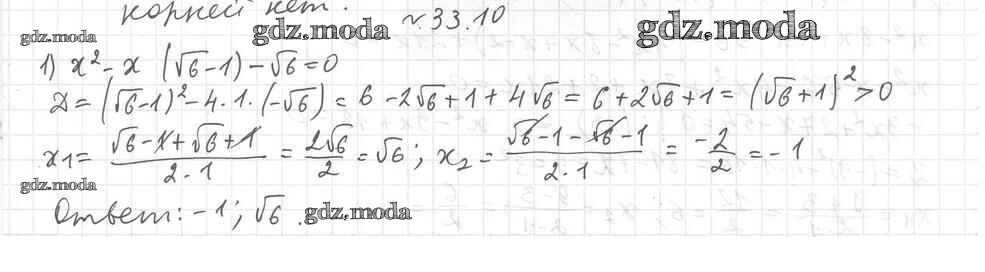 корней нет.
№33.10
gdz.moda gdz.moda gdz.moda
1) x² - x (√6-1) - √6 = 0
Д = (√6-1)² - 4·1·(-√6) = 6 - 2√6 + 1 + 4√6 = 6 + 2√6 + 1 = (√6+1)² > 0
x₁ = (√6 - 1 + √6 + 1)/(2·1) = 2√6/2 = √6; x₂ = (√6 - 1 - √6 - 1)/(2·1) = -2/2 = -1
gdz.moda
Ответ: -1; √6. gdz.moda